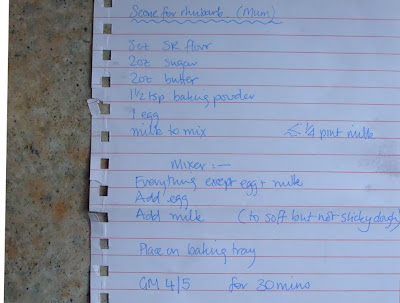 Scone for rhubarb (Mum)
8oz SR flour
2oz sugar
2oz butter
1½ tsp baking powder
1 egg
milk to mix ≤ ¼ pint milk
Mixer :-
Everything except egg + milk
Add egg
Add milk (to soft but not sticky dough)
Place on baking tray
GM 4/5 for 30 mins